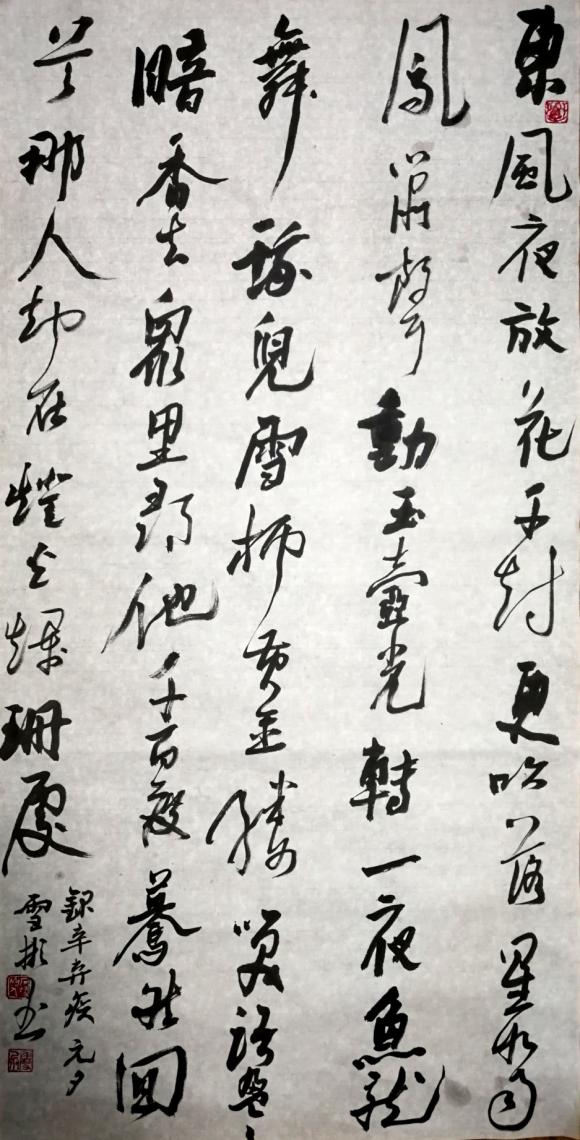 東風夜放花千樹更吹落星如雨
鳳簫聲動玉壺光轉一夜魚龍
舞蛾兒雪柳黄金縷笑語盈盈
暗香去眾里尋他千百度驀然回
首那人却在燈火爛珊處
録辛弃疾元夕
雪彬书